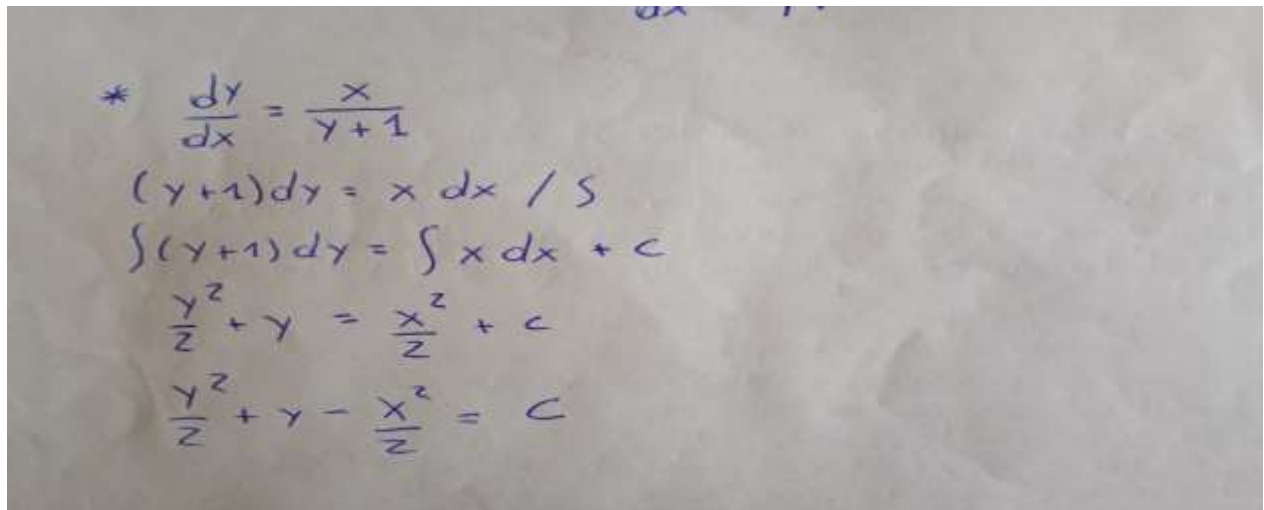 * dy/dx = x/(y + 1)
(y + 1)dy = x dx / ∫
∫(y+1)dy = ∫ x dx + c
y²/2 + y = x²/2 + c
y²/2 + y - x²/2 = C